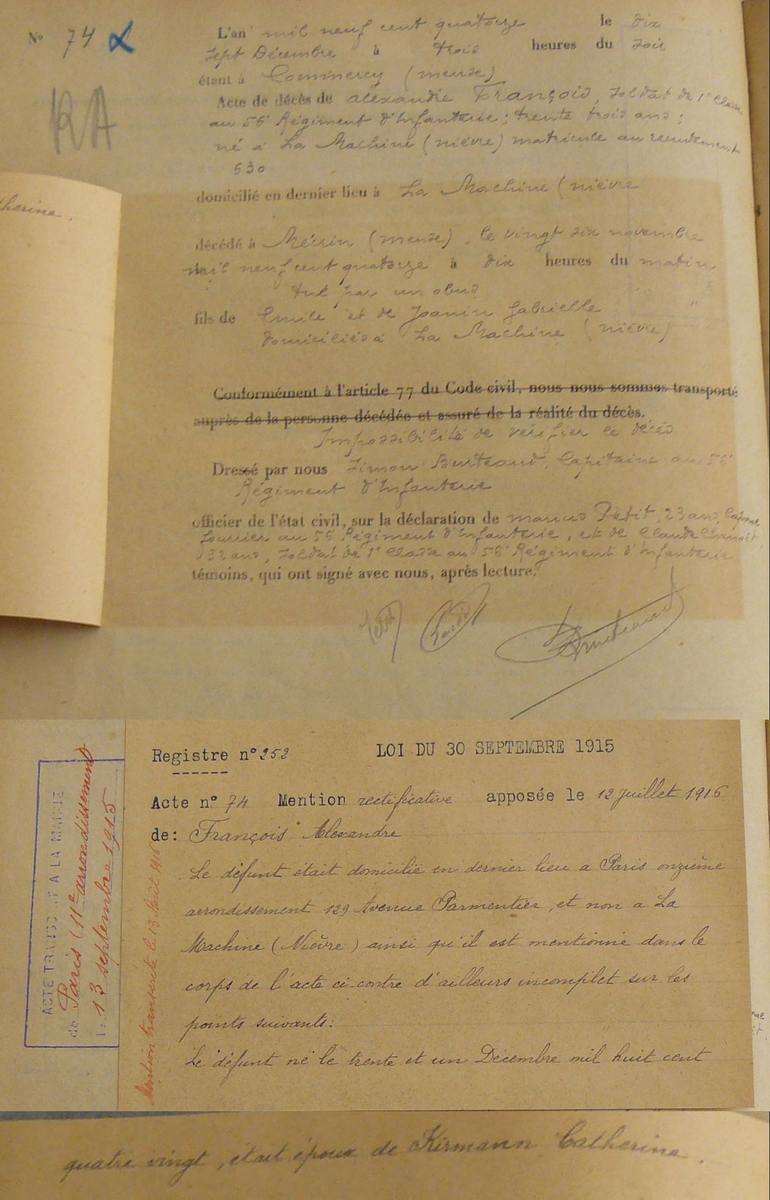 N° 74
RA
L'an mil neuf cent quatorze le dix
sept Décembre à trois heures du soir
étant à Commercy (meuse)
Acte de décès de alexandre François, soldat de 1e Classe
au 56e Régiment d'Infanterie ; trente trois ans ;
né à La Machine (nièvre) matricule au recrutement
630
domicilié en dernier lieu à La Machine (nièvre
décédé à Mécrin (meuse), le vingt six novembre
mil neuf cent quatorze à dix heures du matin
tué par un obus
fils de Emile et de Joanin Gabrielle
domiciliés à La Machine (nièvre)
Conformément à l'article 77 du Code civil, nous nous sommes transporté
auprès de la personne décédée et assuré de la réalité du décès.
Impossibilité de vérifier le décès
Dressé par nous Simon Burteaud, Capitaine au 56e
Régiment d'Infanterie
officier de l'état civil, sur la déclaration de marius Petit, 23 ans, Caporal
fourrier au 56 Régiment d'Infanterie, et de Claude
32 ans, soldat de 1e Classe au 56e Régiment d'Infanterie
témoins, qui ont signé avec nous, après lecture.
therine.
ACTE TRANSCRIT A LA MAIRIE
de Paris (11e arrondissement)
le 13 septembre 1915
Mention transcrite le 13 Août 1916
Registre n° 252 LOI DU 30 SEPTEMBRE 1915
Acte n° 74 Mention rectificative apposée le 12 juillet 1916
de: François Alexandre
Le défunt était domicilié en dernier lieu a Paris onzième
arrondissement 129 Avenue Parmentier, et non a La
Machine (Nièvre) ainsi qu'il est mentionné dans le
corps de l'acte ci-contre d'ailleurs incomplet sur les
points suivants:
Le défunt né le trente et un Décembre mil huit cent
quatre vingt, était époux de Kirmann Catherine.